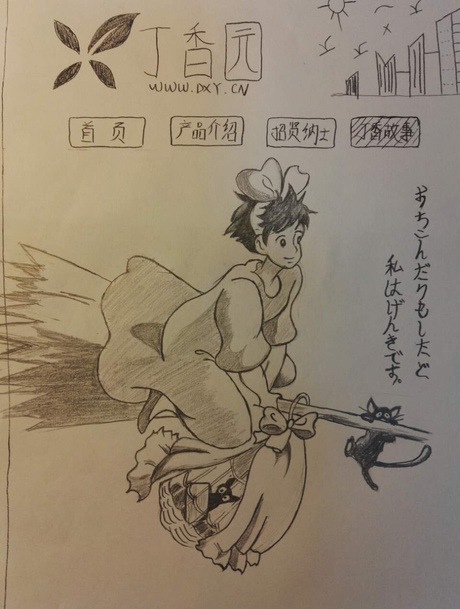 丁香园
WWW.DXY.CN
首页
产品介绍
招贤纳士
丁香故事
おちこんだりもしたど
私はげんきです。